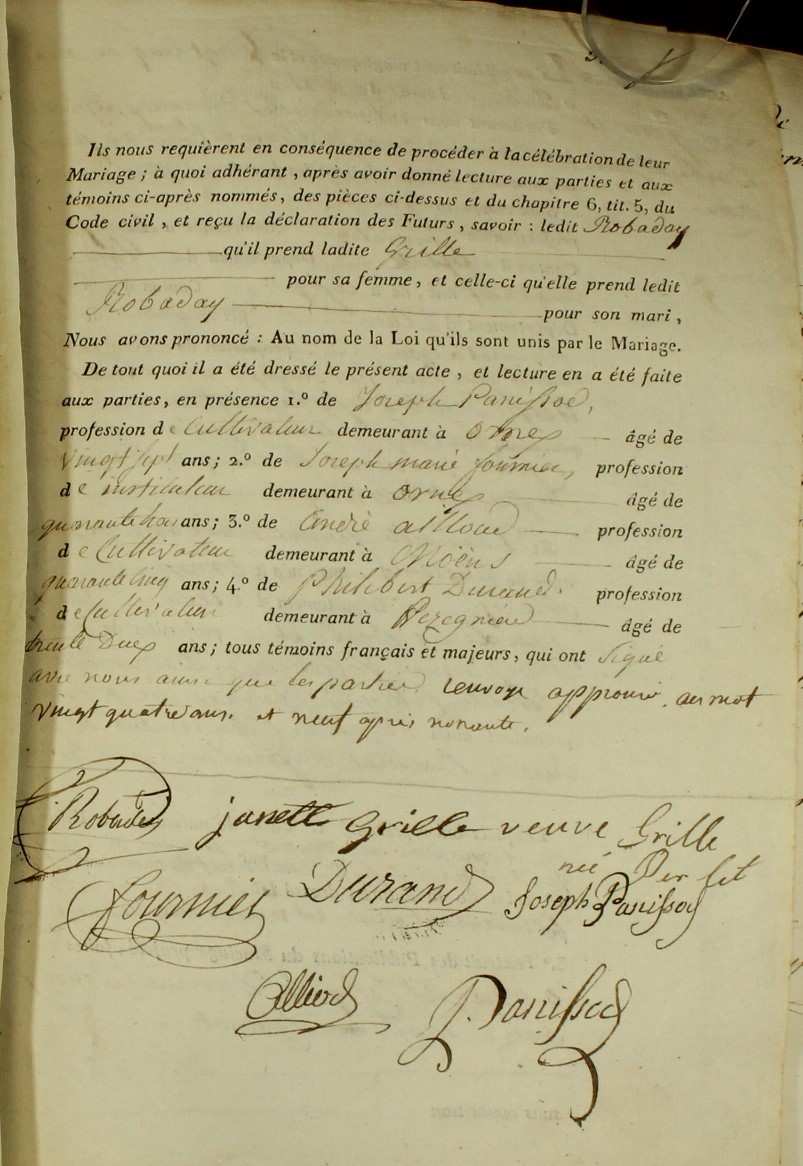 Ils nous requièrent en conséquence de procéder à la célébration de leur
Mariage ; à quoi adhérant , après avoir donné lecture aux parties et aux
témoins ci-après nommés, des pièces ci-dessus et du chapitre 6, tit. 5, du
Code civil , et reçu la déclaration des Futurs , savoir : ledit Robaday
qu'il prend ladite Grille
pour sa femme, et celle-ci qu'elle prend ledit
Robaday pour son mari ,
Nous avons prononcé : Au nom de la Loi qu'ils sont unis par le Mariage.
De tout quoi il a été dressé le présent acte , et lecture en a été faite
aux parties, en présence 1.º de Joseph Panissod,
profession de Cultivateur demeurant à Ornex âgé de
vingt sept ans ; 2.º de Joseph marie fournier, profession
de instituteur demeurant à ornex âgé de
quarante trois ans ; 3.º de André profession
de Cultivateur demeurant à Moëns âgé de
quarante cinq ans ; 4.º de Philibert Durand. profession
de Cultivateur demeurant à âgé de
trente Deux ans ; tous témoins français et majeurs, qui ont signé
avec nous ainsi que les parties renvoye approuvé. au mot
vingt quatre ans. et neuf après nonante.
Robaday janette Grille veuve Grille
née
fournier Durand Joseph Panissod
Panissod